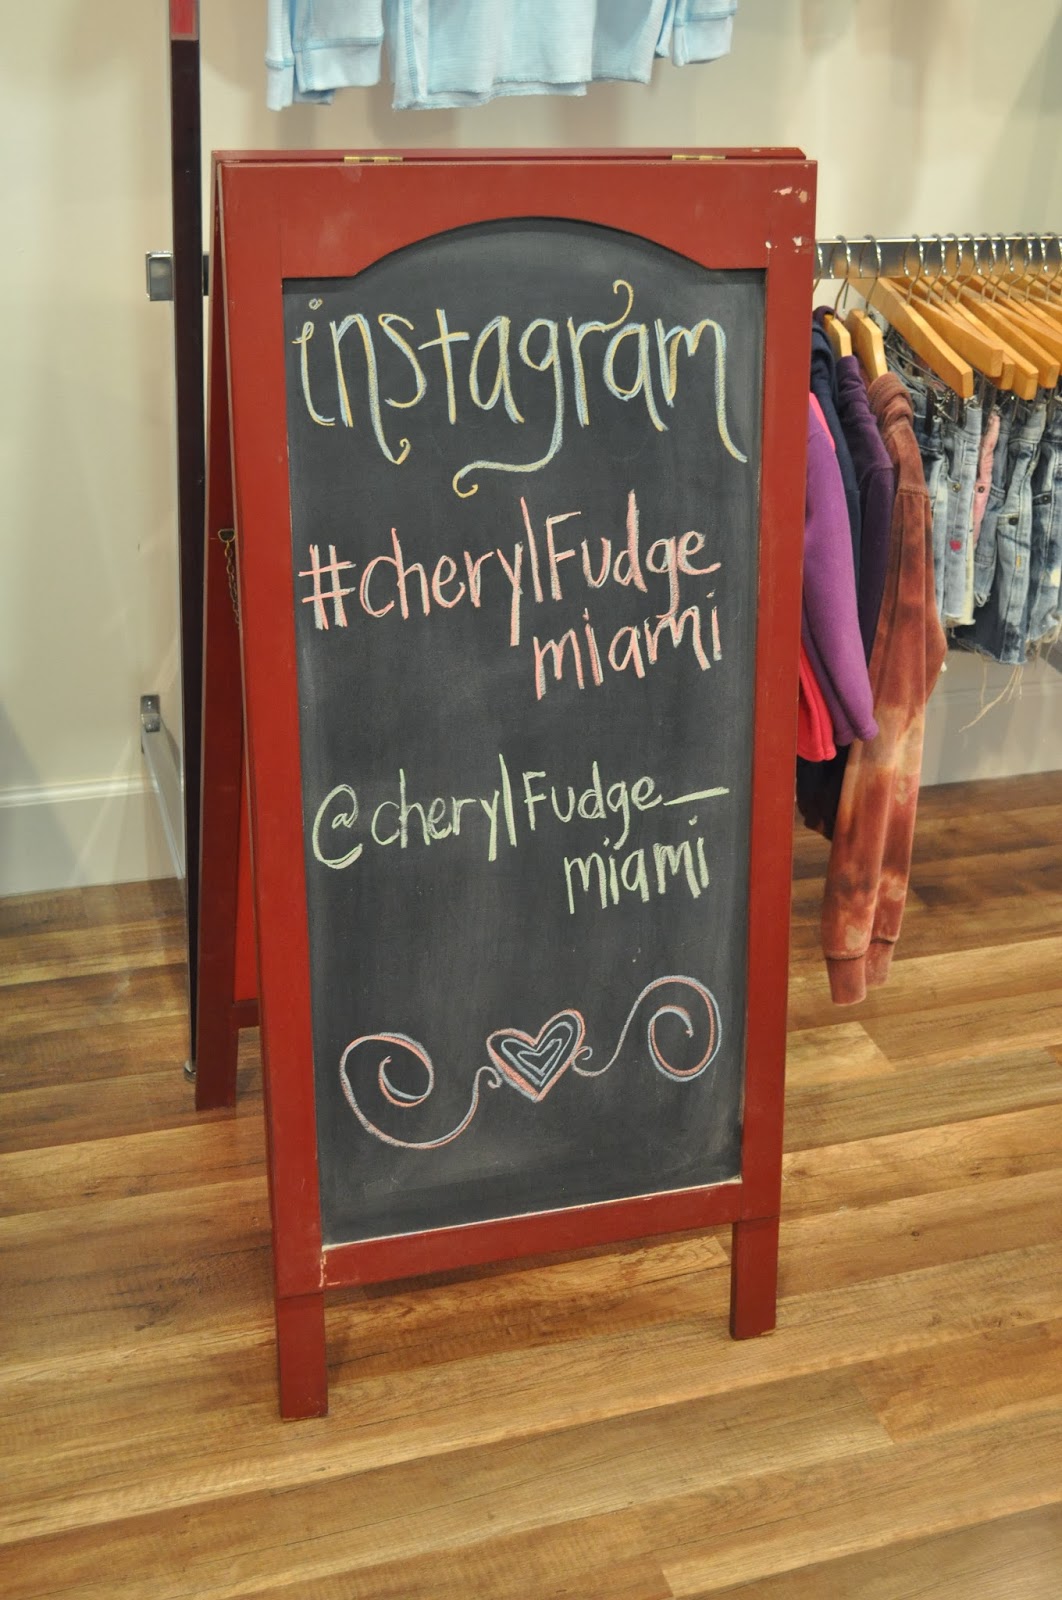 instagram
#cherylFudge
miami
@cherylFudge_
miami